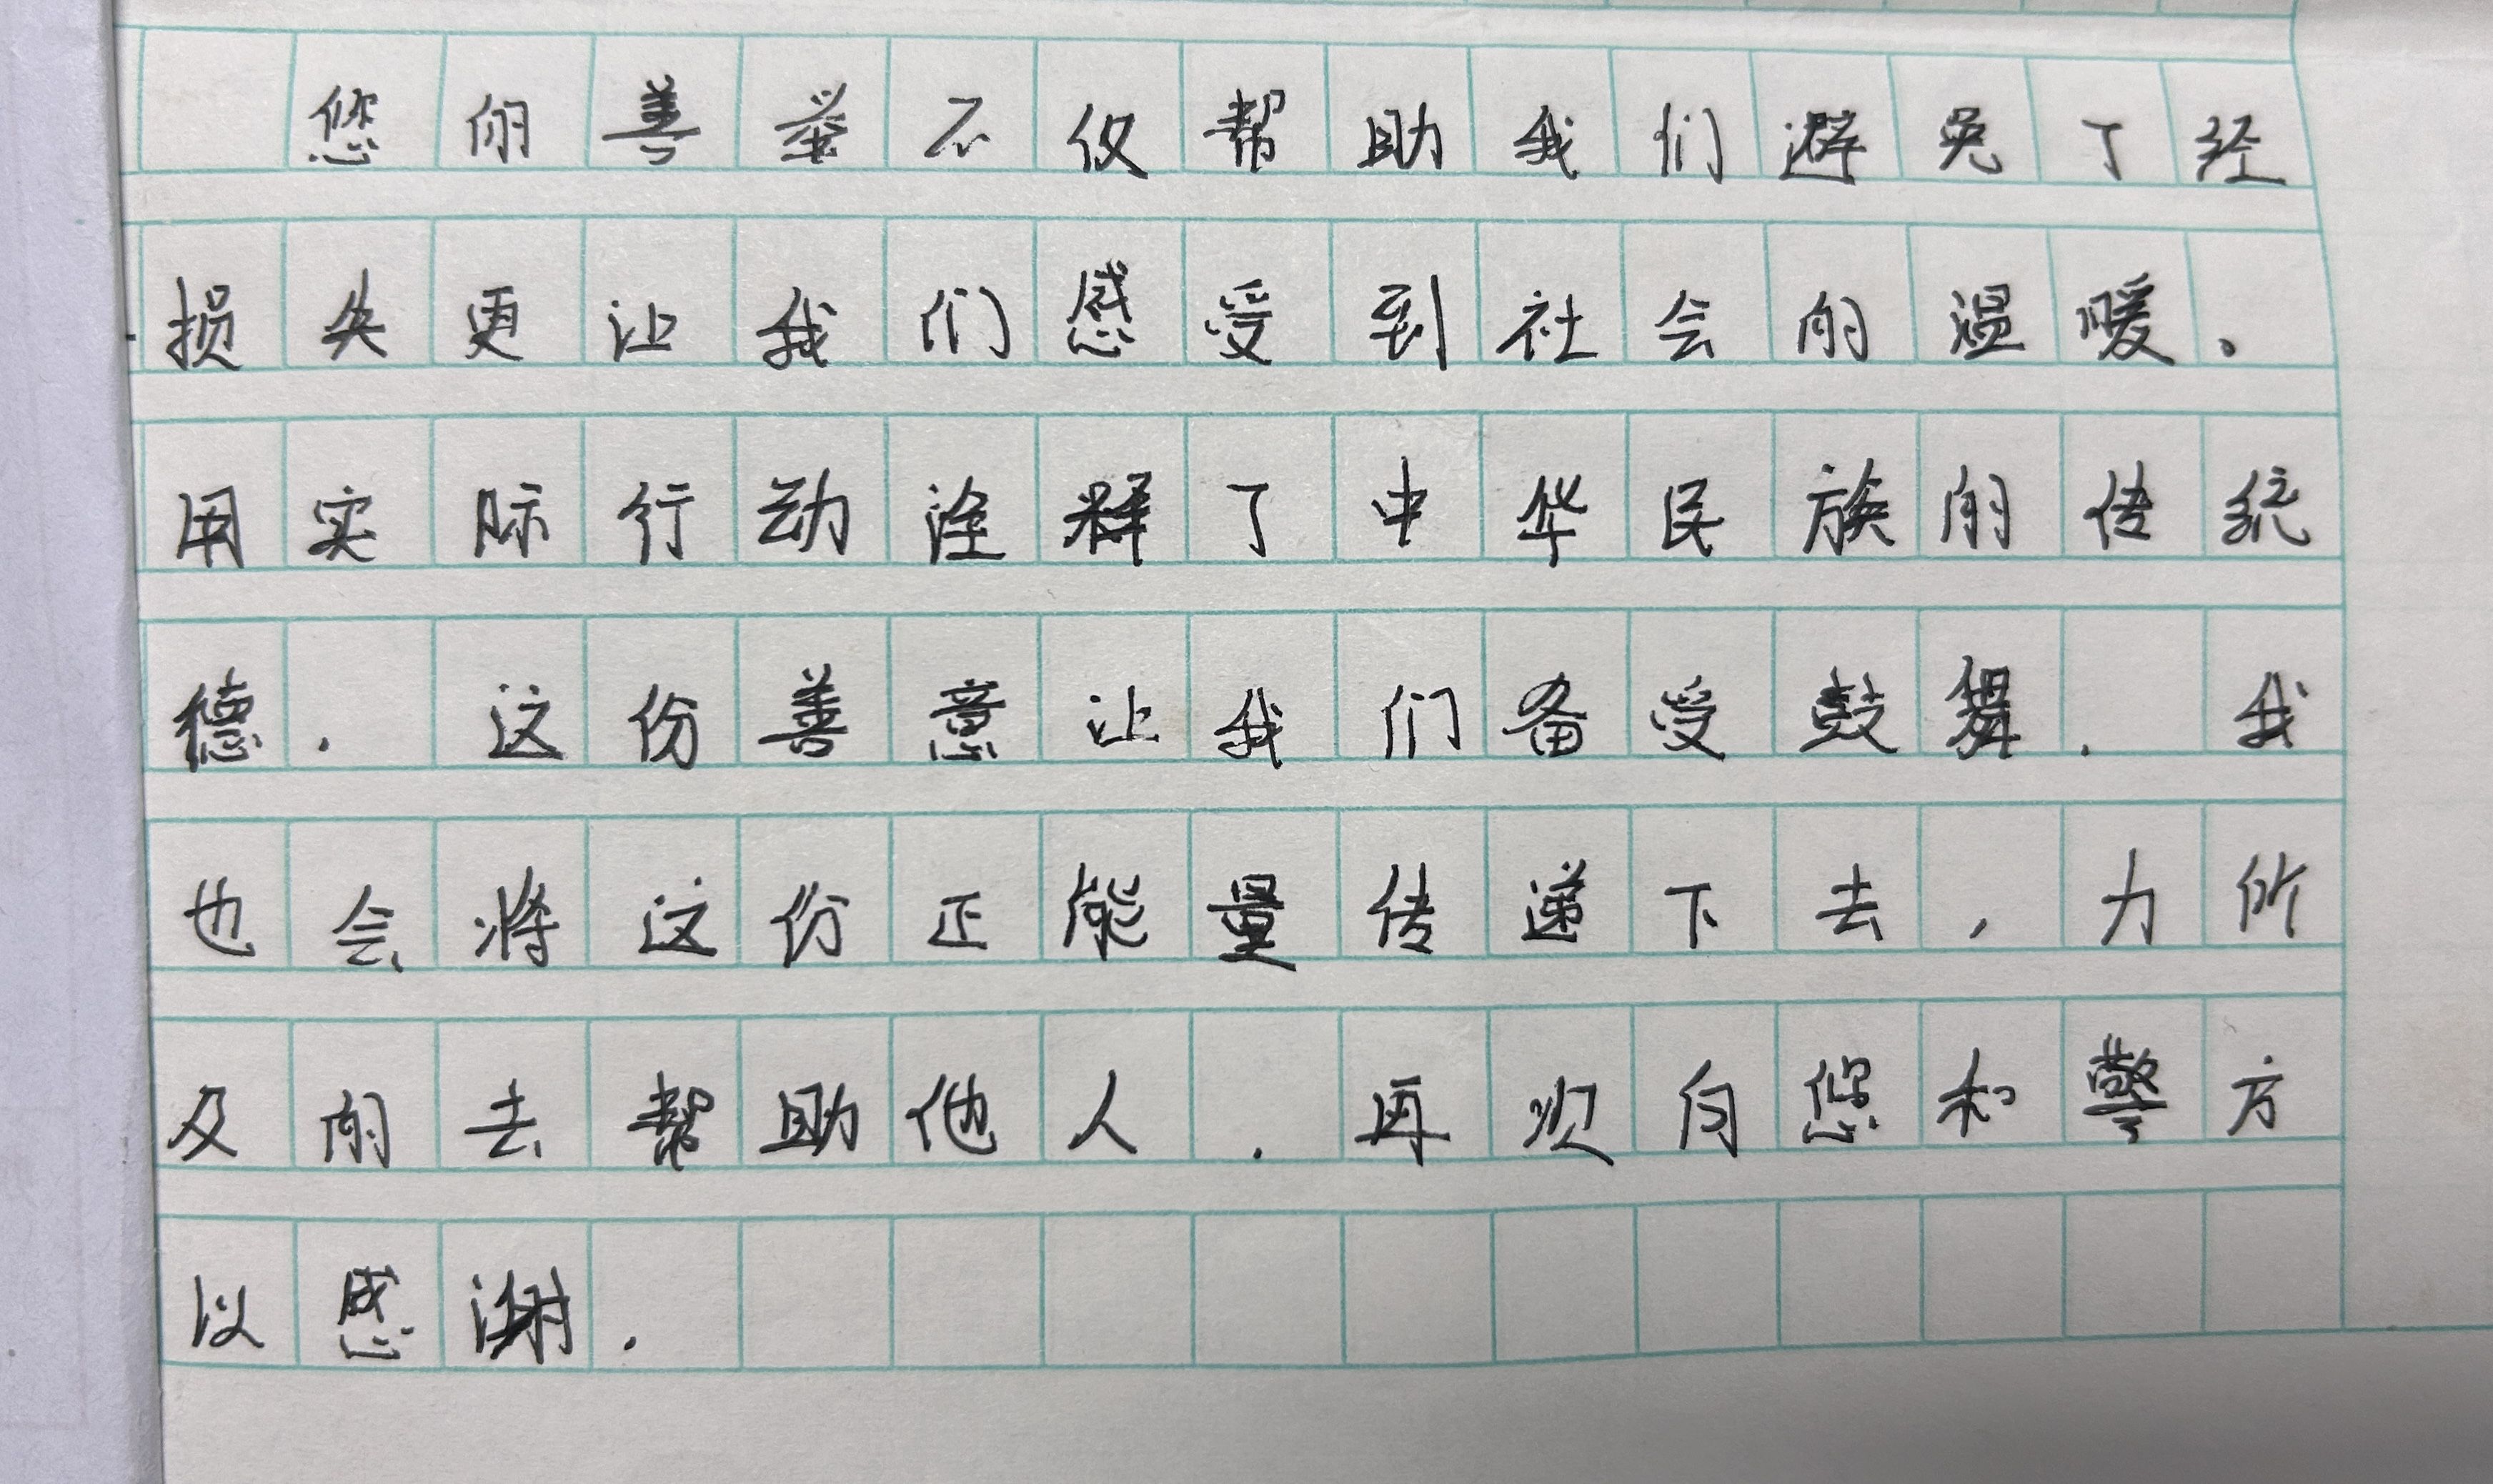 您的善举不仅帮助我们避免了经
损失更让我们感受到社会的温暖。
用实际行动诠释了中华民族的传统
德.这份善意让我们备受鼓舞.我
也会将这份正能量传递下去,力所
及的去帮助他人.再次向您和警方
以感谢.